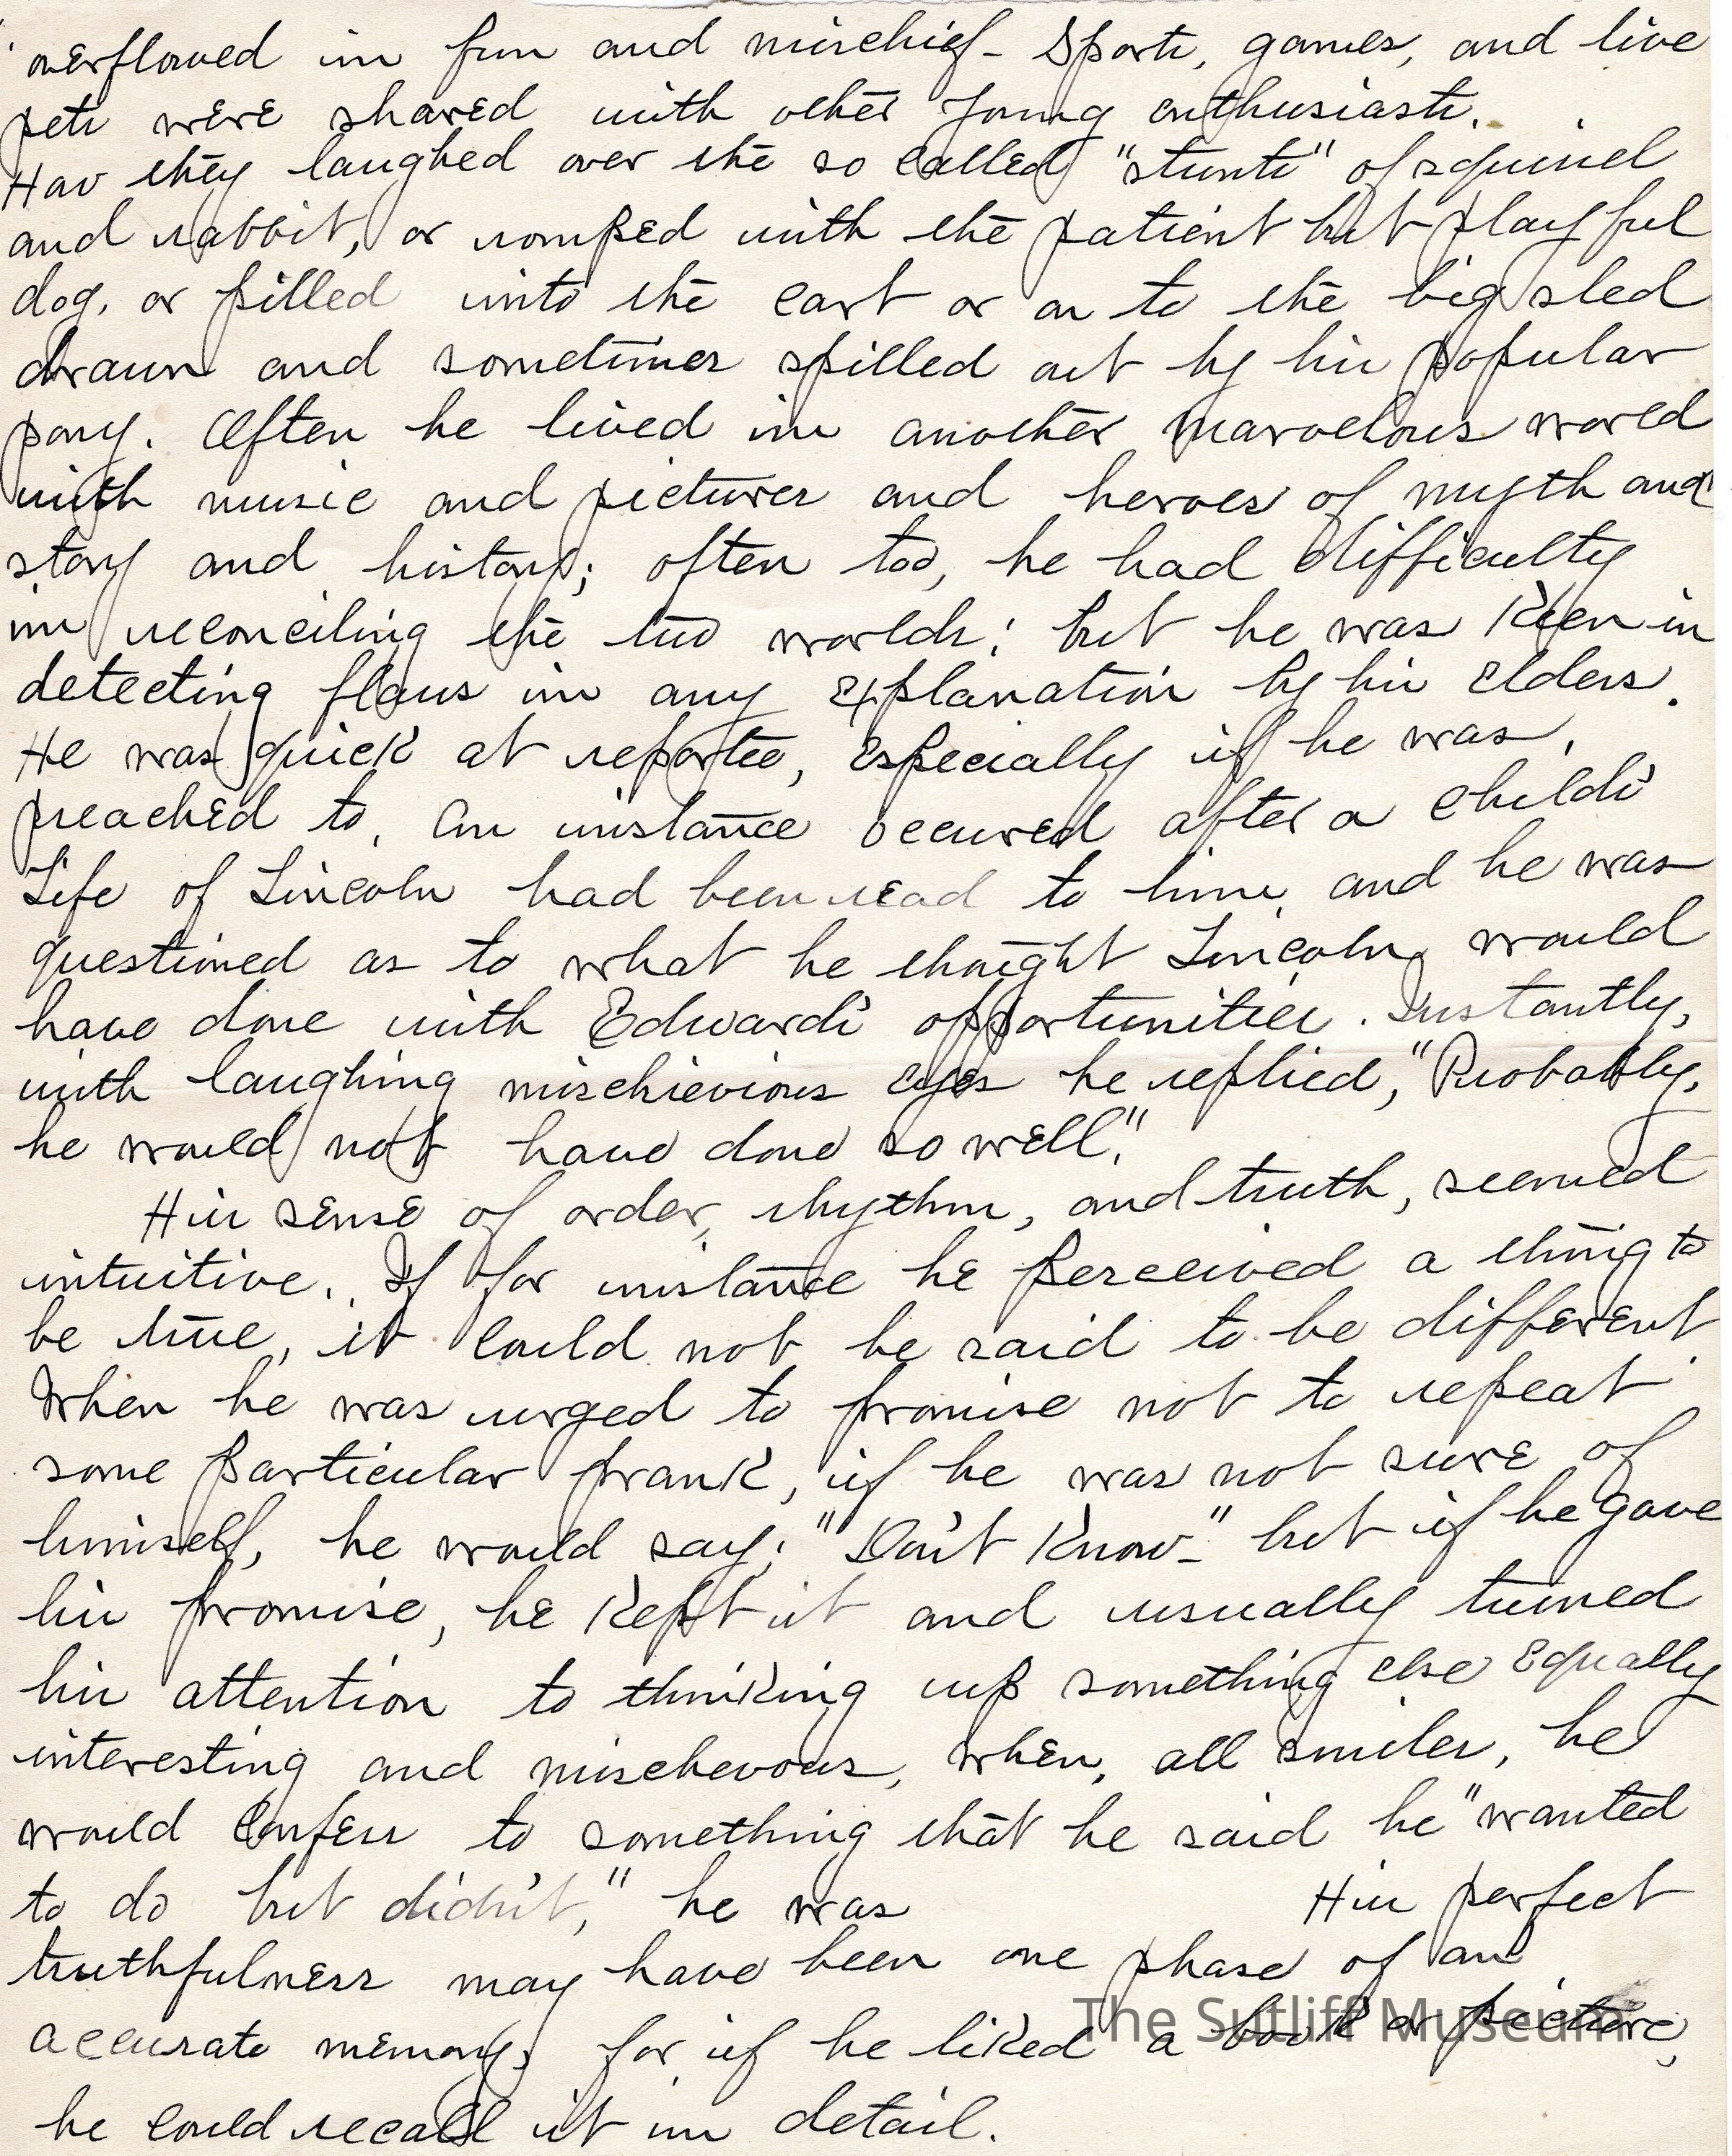 overflowed in fun and mischief - Sports, games, and live
pets were shared with other young enthusiasts.
How they laughed over the so called "stunts" of squirrel
and rabbit, or romped with the patient but playful
dog, or pilled into the cart or on to the big sled
drawn and sometimes spilled out by his popular
pony. Often he lived in another marvelous world
with music and pictures and heroes of myth and
story and history; often too, he had difficulty
in reconciling the two worlds; but he was keen in
detecting flaws in any explanation by his elders.
He was quick at repartee, especially if he was
preached to. An instance occured after a child's
Life of Lincoln had been read to him, and he was
questioned as to what he thought Lincoln would
have done with Edward's opportunities. Instantly,
with laughing mischievious eyes he replied, "Probably,
he would not have done so well."
His sense of order, rhythm, and truth, seemed
intuitive. If for instance he perceived a thing to
be true, it could not be said to be different.
When he was urged to promise not to repeat
some particular prank, if he was not sure of
himself, he would say: "Don't know-" but if he gave
his promise, he kept it and usually turned
his attention to thinking up something else equally
interesting and mischevous, when, all smiles, he
would confess to something that he said he "wanted
to do but didn't," he was His perfect
truthfulness may have been one phase of an
accurate memory, for if he liked a book or picture,
The Sutliff Museum
he could recall it in detail.